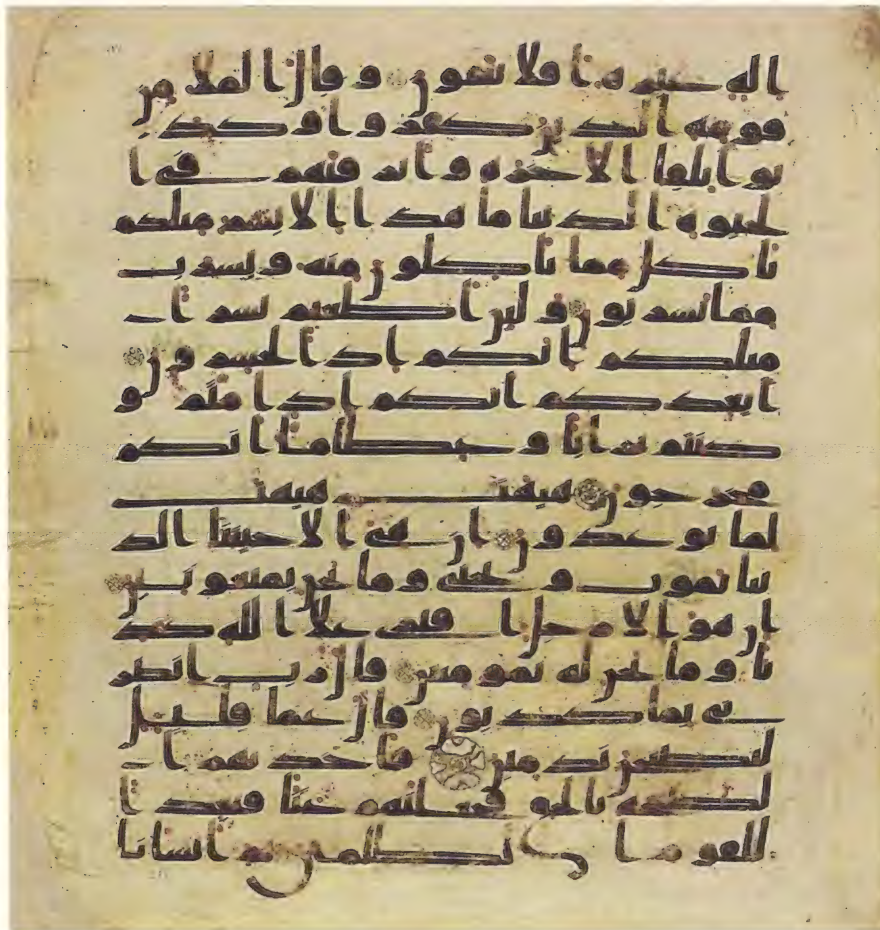 اله غيره افلا تتقون وقال الملا من
قومه الذين كفروا وكذ
بوا بلقا الاخرة واترفنهم في ا
لحيوة الدنيا ما هذا الا بشر مثلكم
ياكل مما تاكلون منه ويشرب
مما تشربون ولين اطعتم بشرا
مثلكم انكم اذا لخسرون
ايعدكم انكم اذا متم و
كنتم ترابا وعظاما انكم
مخرجون هيهت هيهت
لما توعدون ان هي الا حيتنا الد
نيا نموت ونحيا وما نحن بمبعوثين
ان هو الا رجل افترى علا الله كذ
با وما نحن له بمومنين قال رب انصر
ني بما كذبون قال عما قليل
ليصبحن ندمين فاخذتهم ا
لصيحة بالحق فجعلنهم غثا فبعدا
للقوم الظلمين ثم انشانا